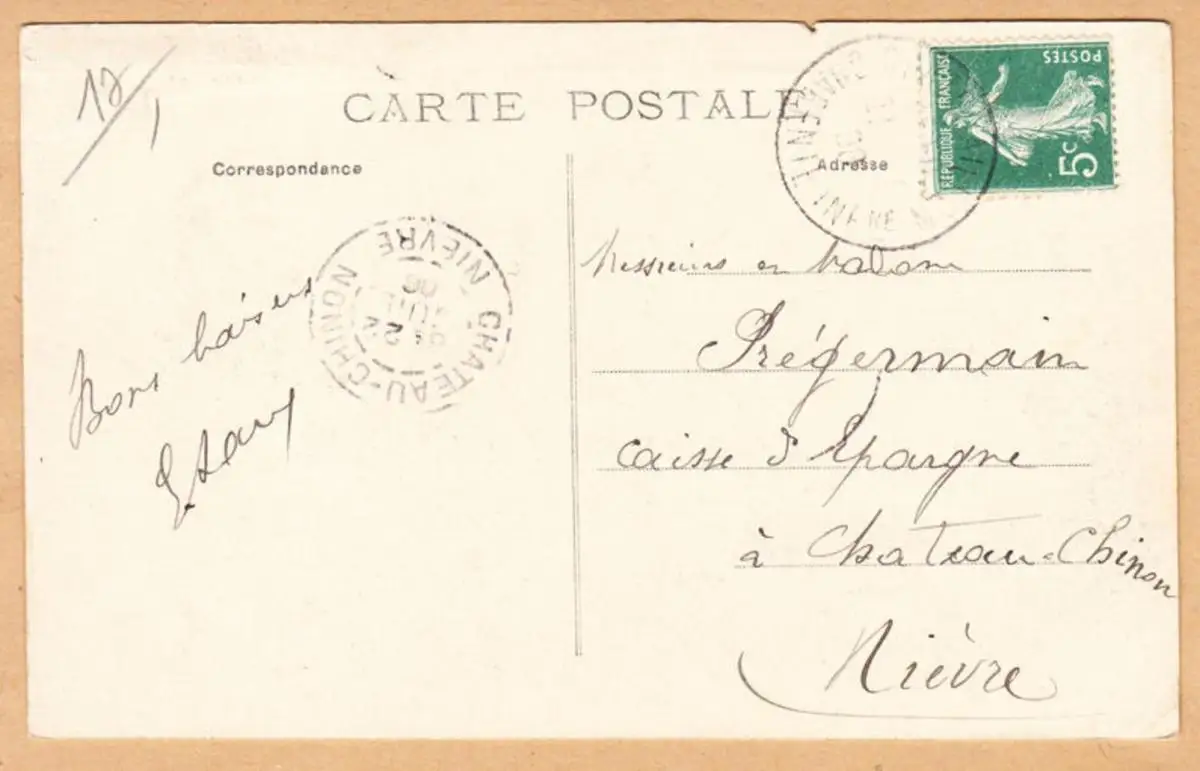 12
CARTE POSTALE
Correspondance
Adresse
RÉPUBLIQUE FRANÇAISE
POSTES
5c
CHATEAU-CHINON
NIEVRE
Bons baisers
Messieurs en
Prégermain
caisse d'Epargne
à Chateau-Chinon
Nièvre